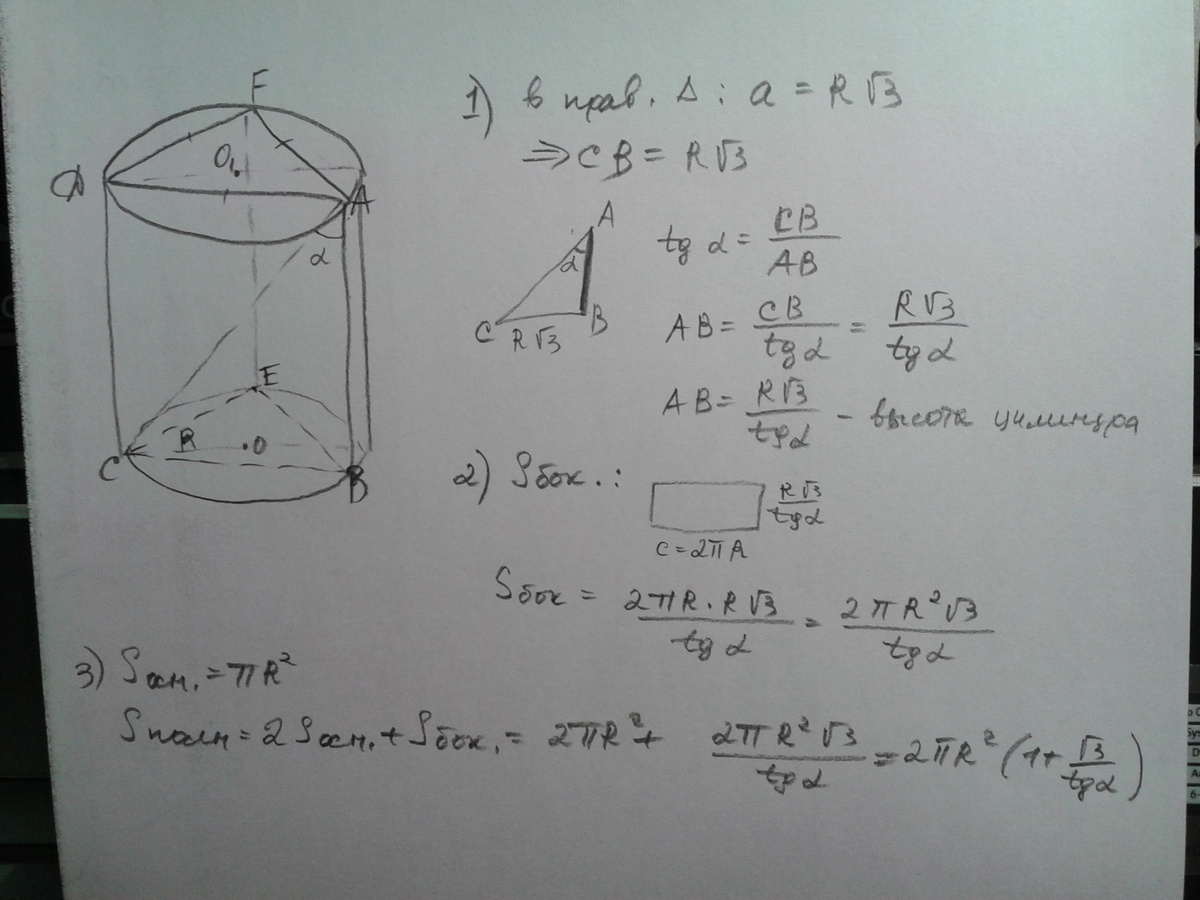 F
D
O₁
A
α
E
R
O
C
B
1) в прав. Δ : a = R√3
⇒ CB = R√3
A
α
C
R√3
B
tg α = CB/AB
AB = CB/tg α = R√3/tg α
AB = R√3/tg α - высота цилиндра
2) Sбок. :
R√3/tg α
C = 2πR
Sбок = 2πR · R√3/tg α = 2πR²√3/tg α
3) Sосн. = πR²
Sполн = 2Sосн. + Sбок. = 2πR² + 2πR²√3/tg α = 2πR² (1 + √3/tg α)